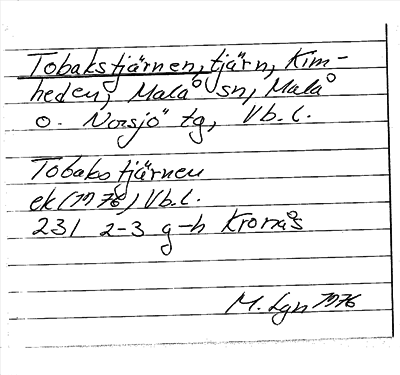 Tobakstjärnen, tjärn, Kim-
heden, Malå sn, Malå
o. Norsjö tg, Vb. l.
Tobakstjärnen
ek (1976) Vb. l.
231 2-3 g-h Kronås
M. Lgn 1976